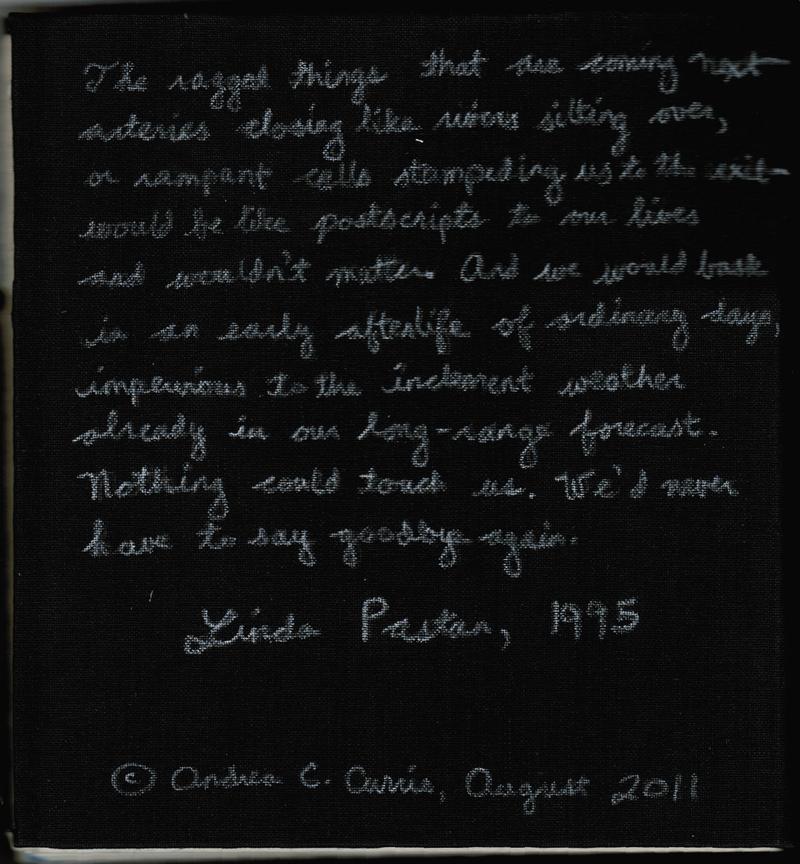 The ragged things that are coming next—
arteries closing like rivers silting over,
or rampant cells stampeding us to the exit—
would be like postscripts to our lives
and wouldn't matter. And we would bask
in an early afterlife of ordinary days,
impervious to the inclement weather
already in our long-range forecast.
Nothing could touch us. We'd never
have to say goodbye again.
Linda Pastan, 1995
© Andrea C. August 2011